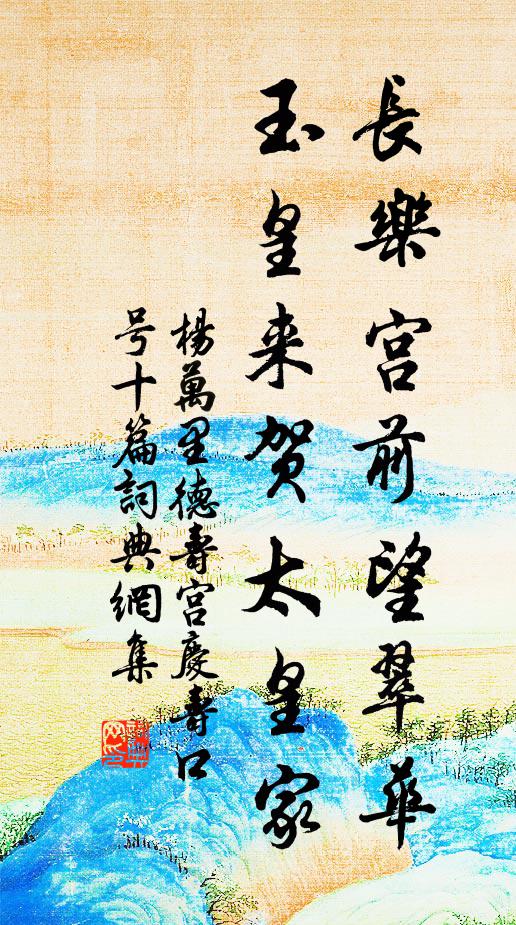 長樂宮前望翠華
玉皇来賀太皇家
楊萬里德壽宮慶壽口
号十篇詞典網集